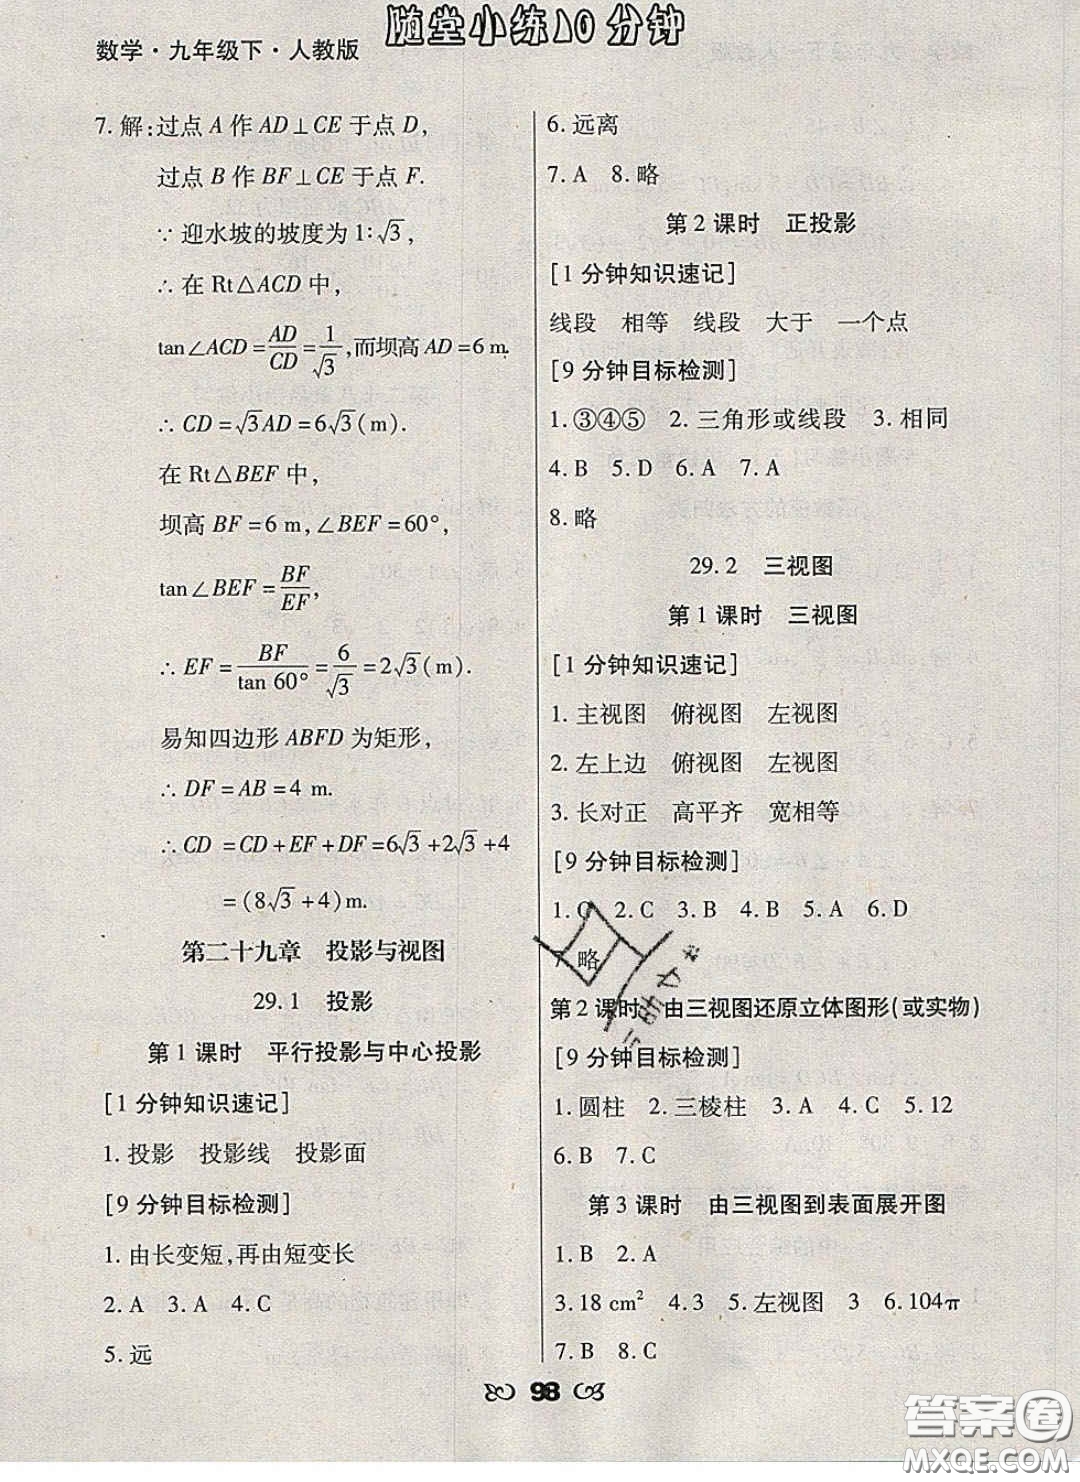 随堂小练10分钟
数学·九年级下·人教版
7.解:过点A作AD⊥CE于点D,
过点B作BF⊥CE于点F.
∵迎水坡的坡度为1:√3,
∴在Rt△ACD中,
tan∠ACD=AD/CD=1/√3,而坝高AD=6 m.
∴CD=√3AD=6√3(m).
在Rt△BEF中,
坝高BF=6 m,∠BEF=60°,
tan∠BEF=BF/EF,
∴EF=BF/tan 60°=6/√3=2√3(m).
易知四边形ABFD为矩形,
∴DF=AB=4 m.
∴CD=CD+EF+DF=6√3+2√3+4
=(8√3+4)m.
第二十九章 投影与视图
29.1 投影
第1课时 平行投影与中心投影
[1分钟知识速记]
1.投影 投影线 投影面
[9分钟目标检测]
1.由长变短,再由短变长
2.A 3.A 4.C
5.远
6.远离
7.A 8.略
第2课时 正投影
[1分钟知识速记]
线段 相等 线段 大于 一个点
[9分钟目标检测]
1.③④⑤ 2.三角形或线段 3.相同
4.B 5.D 6.A 7.A
8.略
29.2 三视图
第1课时 三视图
[1分钟知识速记]
1.主视图 俯视图 左视图
2.左上边 俯视图 左视图
3.长对正 高平齐 宽相等
[9分钟目标检测]
1.C 2.C 3.B 4.B 5.A 6.D
7.略
第2课时 由三视图还原立体图形(或实物)
[9分钟目标检测]
1.圆柱 2.三棱柱 3.A 4.C 5.12
6.B 7.C
第3课时 由三视图到表面展开图
1.B 2.A
3.18 cm² 4.3 5.左视图 3 6.104π
7.B 8.C
98
答案圈
MXQE.COM